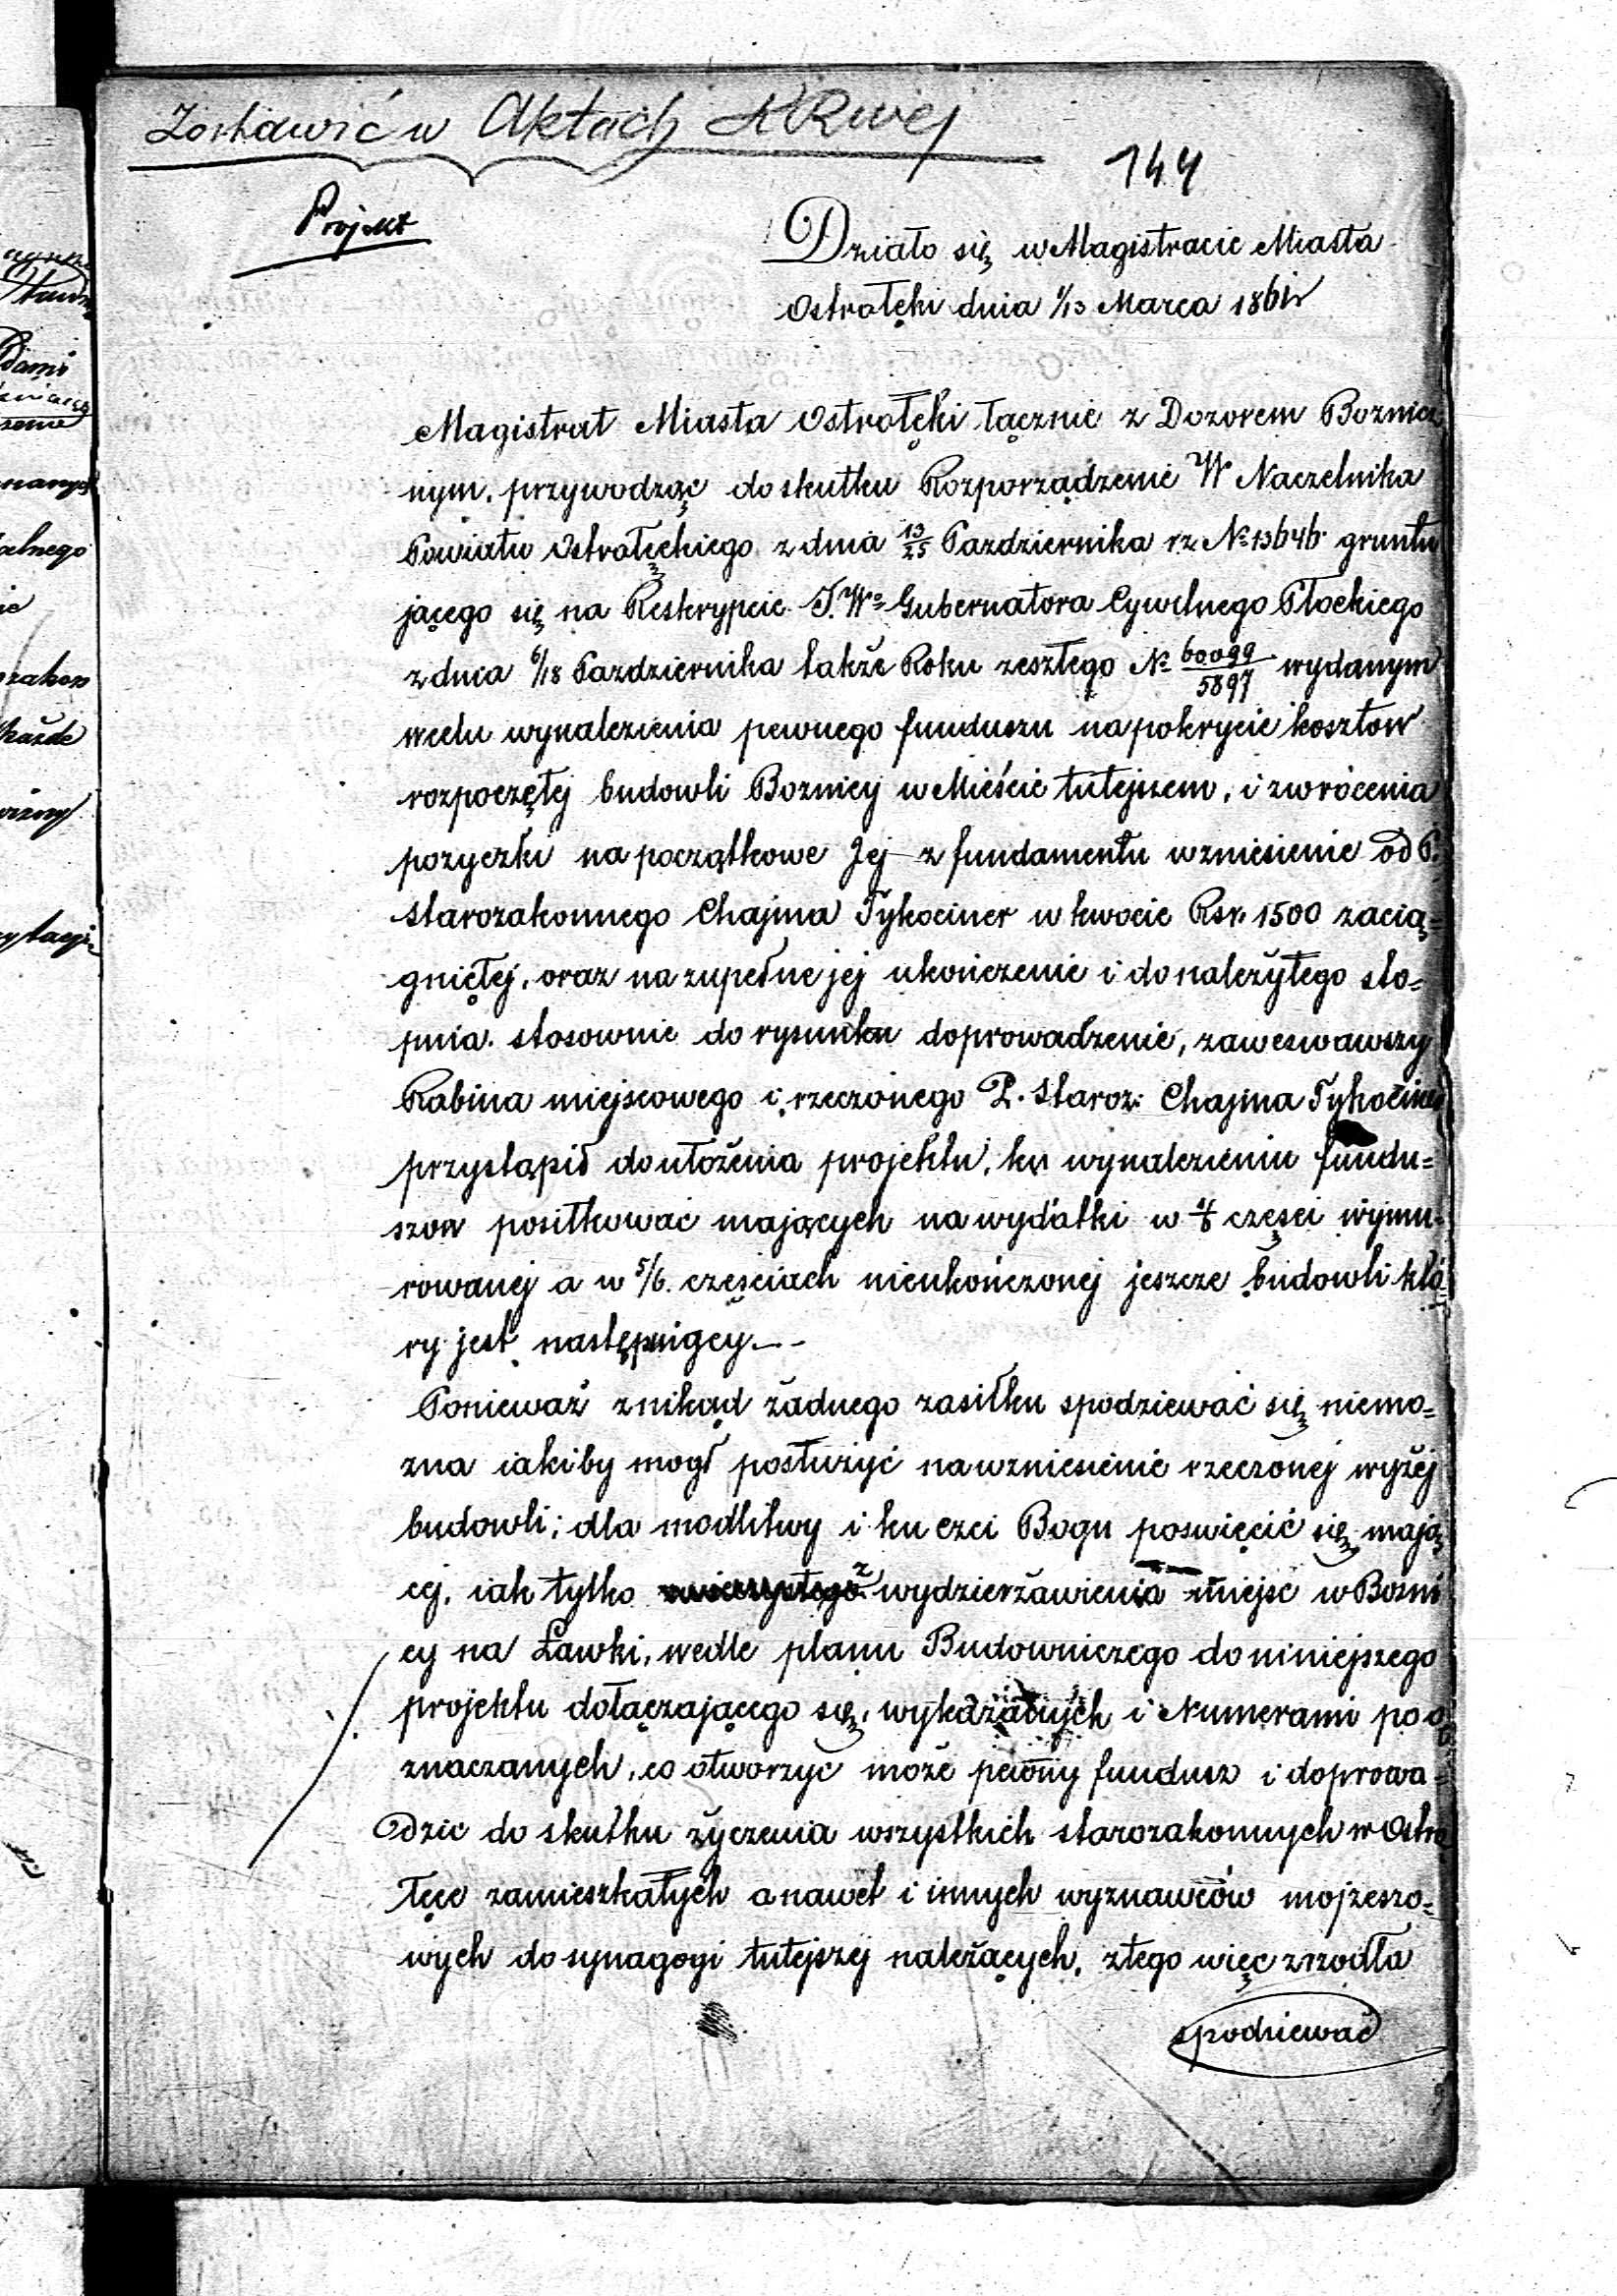 Zostawić w Aktach KRwej
144
Projekt
Działo się w Magistracie Miasta
Ostrołęki dnia 1/13 Marca 1861r
Magistrat Miasta Ostrołęki łącznie z Dozorem Boznicz
nym, przywodząc do skutku Rozporządzenie W Naczelnika
Powiatu Ostrołęckiego z dnia 13/25 Pazdziernika rz No 13646 gruntu
jącego się na Reskrypcie J.Wo Gubernatora Cywilnego Płockiego
z dnia 6/18 Pazdziernika także Roku zeszłego No 60099/5897 wydanym
w celu wynalezienia pewnego funduszu na pokrycie kosztow
rozpoczętej budowli Boznicy w Mieście tutejszem, i zwrócenia
pozyczki na początkowe Jej z fundamentu wzniesienie od P.
starozakonnego Chajma Tykociner w kwocie Rsr. 1500 zacią=
gniętej, oraz na zupełne jej ukończenie i do nalezytego sto=
pnia stosownie do rysunku doprowadzenie, zawezwawszy
Rabina miejscowego i rzeczonego P. Staroz: Chajma Tykociner
przystąpił do ułożenia projektu, ku wynalezieniu fundu=
szow positkować mających na wydatki w częsci wymu=
rowanej a w 5/6. częsciach nieukończonej jeszcze budowli któ
ry jest następuiący.--
Ponieważ znikąd żadnego zasiłku spodziewać się niemo=
zna iakiby mogł posłuzyć na wzniesienie rzeczonej wyżej
budowli; dla modlitwy i ku czci Bogu poswięcić się mają
cej, iak tylko z wydzierżawienia miejsc w Bozni
cy na Ławki, wedle planu Budowniczego do niniejszego
projektu dołączającego się, wykazanych i Numerami poo
znaczanych, co otworzyć może pewny fundusz i doprowa=
dzic do skutku życzenia wszystkich starozakonnych w Ostro
łęce zamieszkałych a nawet i innych wyznawców mojzeszo=
wych do synagogi tutejszej należących, z tego więc zrzodła
spodziewać